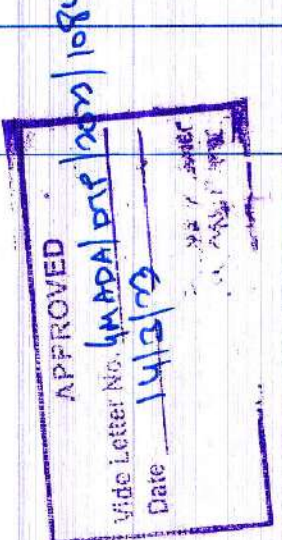 APPROVED
Vide Letter No. GMADA/DTP/2023/108
Date 14/3/23